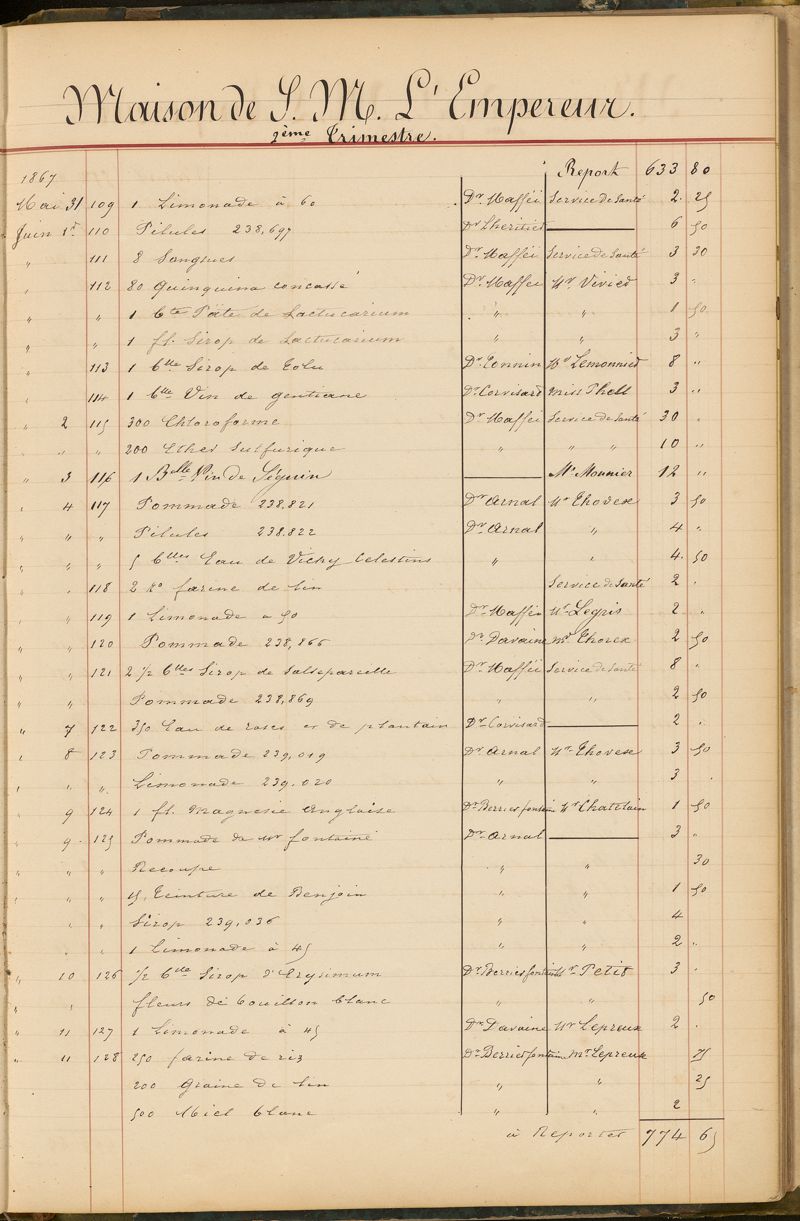 Maison de S. M. L'Empereur.
2ème Trimestre.
1867 Report 633 80
Mai 31 109 1 Limonade à 60 Dr Maffei Service de Santé 2 25
Juin 1r 110 Pilules 238,697 Dr Lheritier 6 50
" 111 8 Sangsues Dr Maffei Service de Santé 3 30
" 112 80 Quinquina concassé Dr Maffei Mr Vivier 3 "
" " 1 Bte Pâte de Lactucarium " " 1 50
" " 1 fl. Sirop de Lactucarium " " 3 "
113 1 Blle Sirop de Tolu Dr Connin Mr Lemonnier 8 "
" 114 1 Blle Vin de gentiane Dr Corvisard Miss Shell 3 "
" 2 115 300 Chloroforme Dr Maffei Service de Santé 30 "
" " 200 Ether Sulfurique " " " 10 "
" 3 116 1 Blle Vin de Séguin Mr Mounier 12 "
" 4 117 Pommade 238,821 Dr Arnal Mr Thorex 3 50
" " " Pilules 238.822 Dr Arnal " 4 "
" " " 5 Blles Eau de Vichy Celestins " " 4 50
" " 118 2 Ko farine de lin Service de Santé 2 "
" 119 1 Limonade a 50 Dr Maffei Mr Legris 2 "
" " 120 Pommade 238,866 Dr Davaine Mr Thorex 2 50
" " 121 2 1/2 Blles Sirop de Salsepareille Dr Maffei Service de Santé 8 "
Pommade 238,869 " " 2 50
" 7 122 350 Eau de roses et de plantain Dr Corvisard 2 "
" 8 123 Pommade 239,019 Dr Arnal Mr Thorex 3 50
" " " Limonade 239.020 " " 3 "
" 9 124 1 fl. Magnésie Anglaise Dr Berrier fontaine Mr Chatelain 1 50
" 9 125 Pommade de Mr fontaine Dr Arnal 3 "
" " " Recoupe " " 30
" " " 15 Teinture de Benjoin " " 1 50
" " Sirop 239,036 " " 4
" " 1 Limonade à 45 " " 2 "
" 10 126 1/2 Blle Sirop d'Erysimum Dr Berrier fontaine Mr Petit 3 "
" " fleurs de bouillon blanc " " 50
" 11 127 1 Limonade à 45 Dr Davaine Mr Lepreux 2 "
" 11 128 250 farine de riz Dr Berrier fontaine Mr Lepreux 75
200 Graine de lin " " 25
500 Miel blanc " " 2
à Reporter 774 65